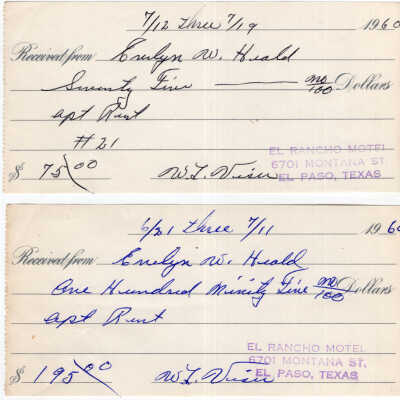 7/12 three 7/19 1960
Received from Evelyn W. Heald
Seventy Five no/100 Dollars
apt Rent
#21
$ 75 00 W.L.
EL RANCHO MOTEL
6701 MONTANA ST
EL PASO, TEXAS
6/21 three 7/11 1960
Received from Evelyn W. Heald
One Hundred Ninity Five no/100 Dollars
apt Rent
$ 195 00 W.L.
EL RANCHO MOTEL
6701 MONTANA ST.
EL PASO, TEXAS